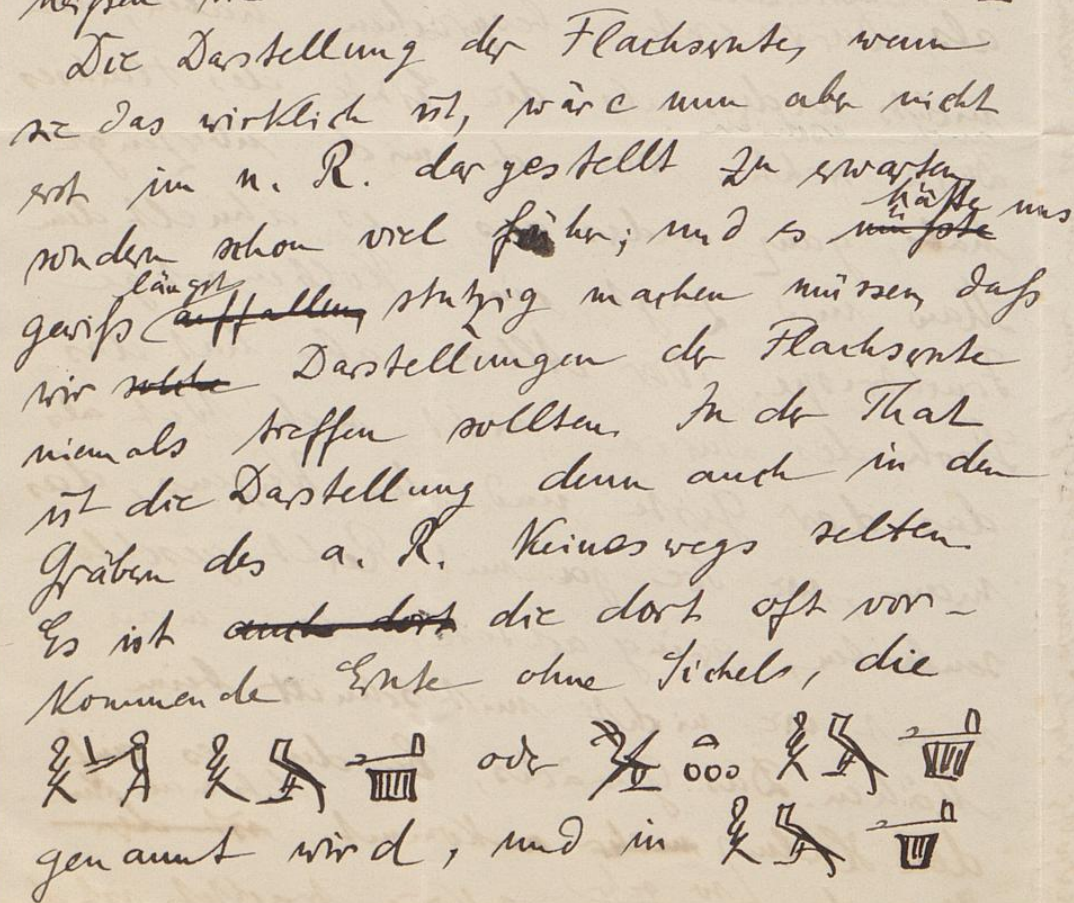 Die Darstellung der Flachsernte, wenn
sie das wirklich ist, wäre nun aber nicht
erst im n. R. dargestellt zu erwarten,
sondern schon viel früher; und es müsste hätte uns
gewiss auffallen, längst stutzig machen müssen, dass
wir solche Darstellungen der Flachsernte
niemals treffen sollten. In der That
ist die Darstellung denn auch in den
Gräbern des a. R. keineswegs selten.
Es ist auch dort die dort oft vor-
kommende Ernte ohne Sichels, die
oder
genannt wird, und in